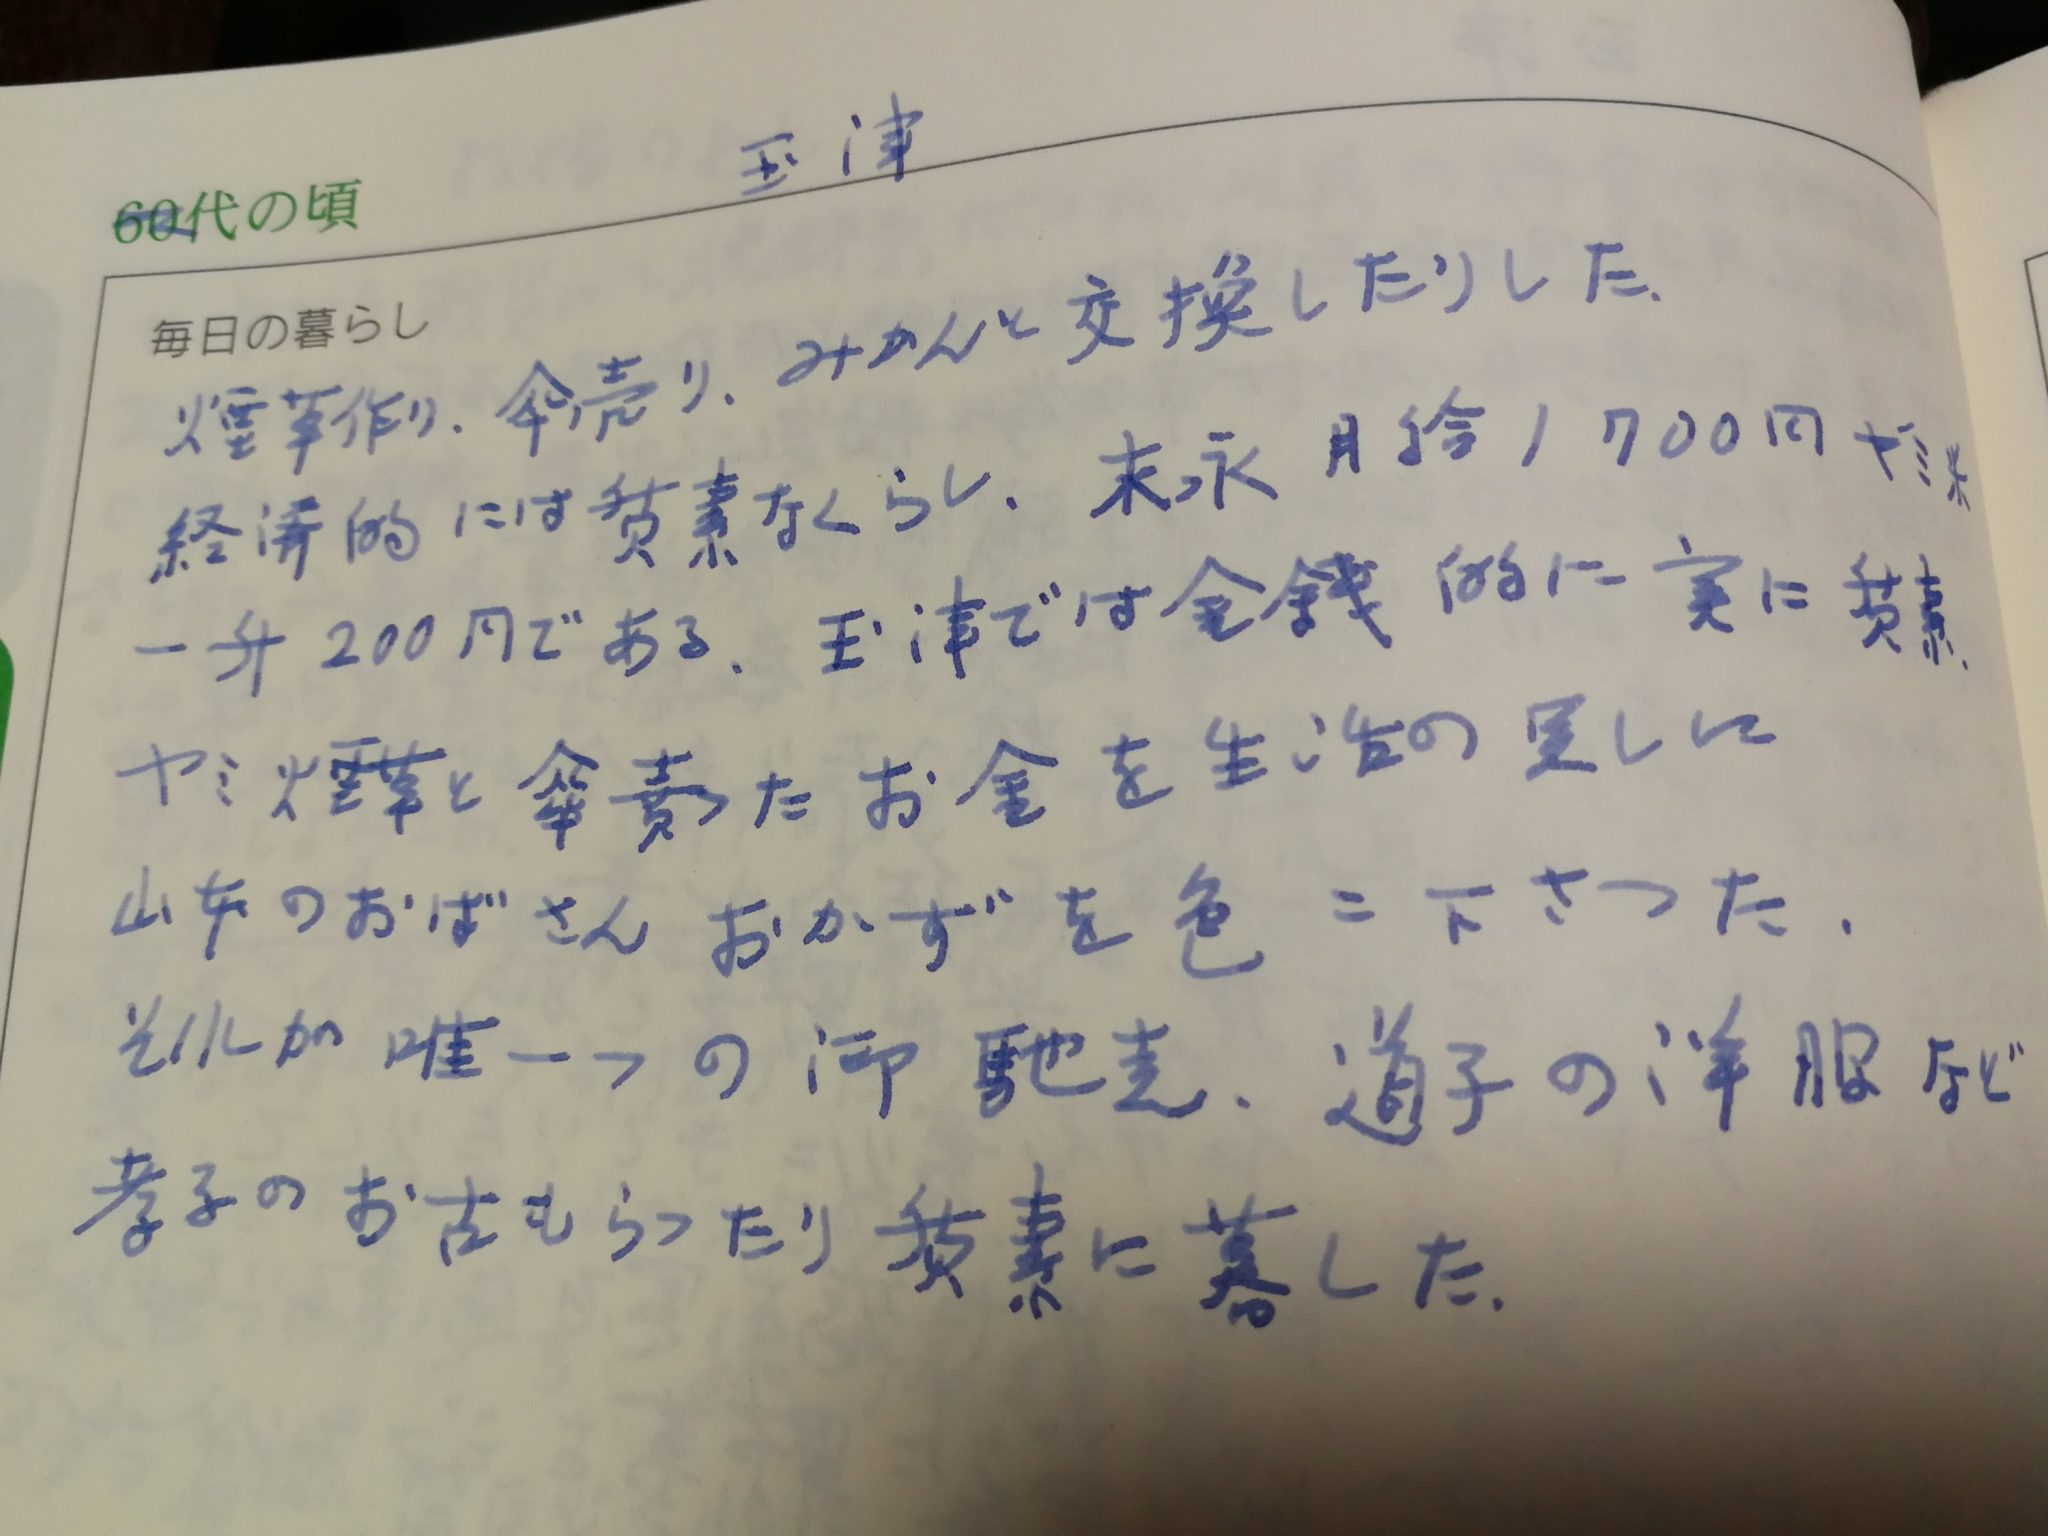 玉津
60代の頃
毎日の暮らし
煙草作り、傘売り、みかんと交換したりした、
経済的には質素なくらし、末永月給1700円ヤミ米
一升200円である、玉津では金銭的に実に質素、
ヤミ煙草と傘売ったお金を生活の足しに
山本のおばさんおかずを色々下さった、
それが唯一つの御馳走、道子の洋服など
孝子のお古もらったり質素に暮した、